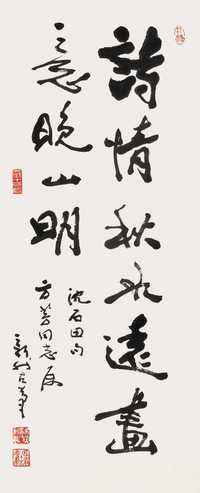 詩情秋水遠畫
意晚山明
沈石田句
方芳同志屬